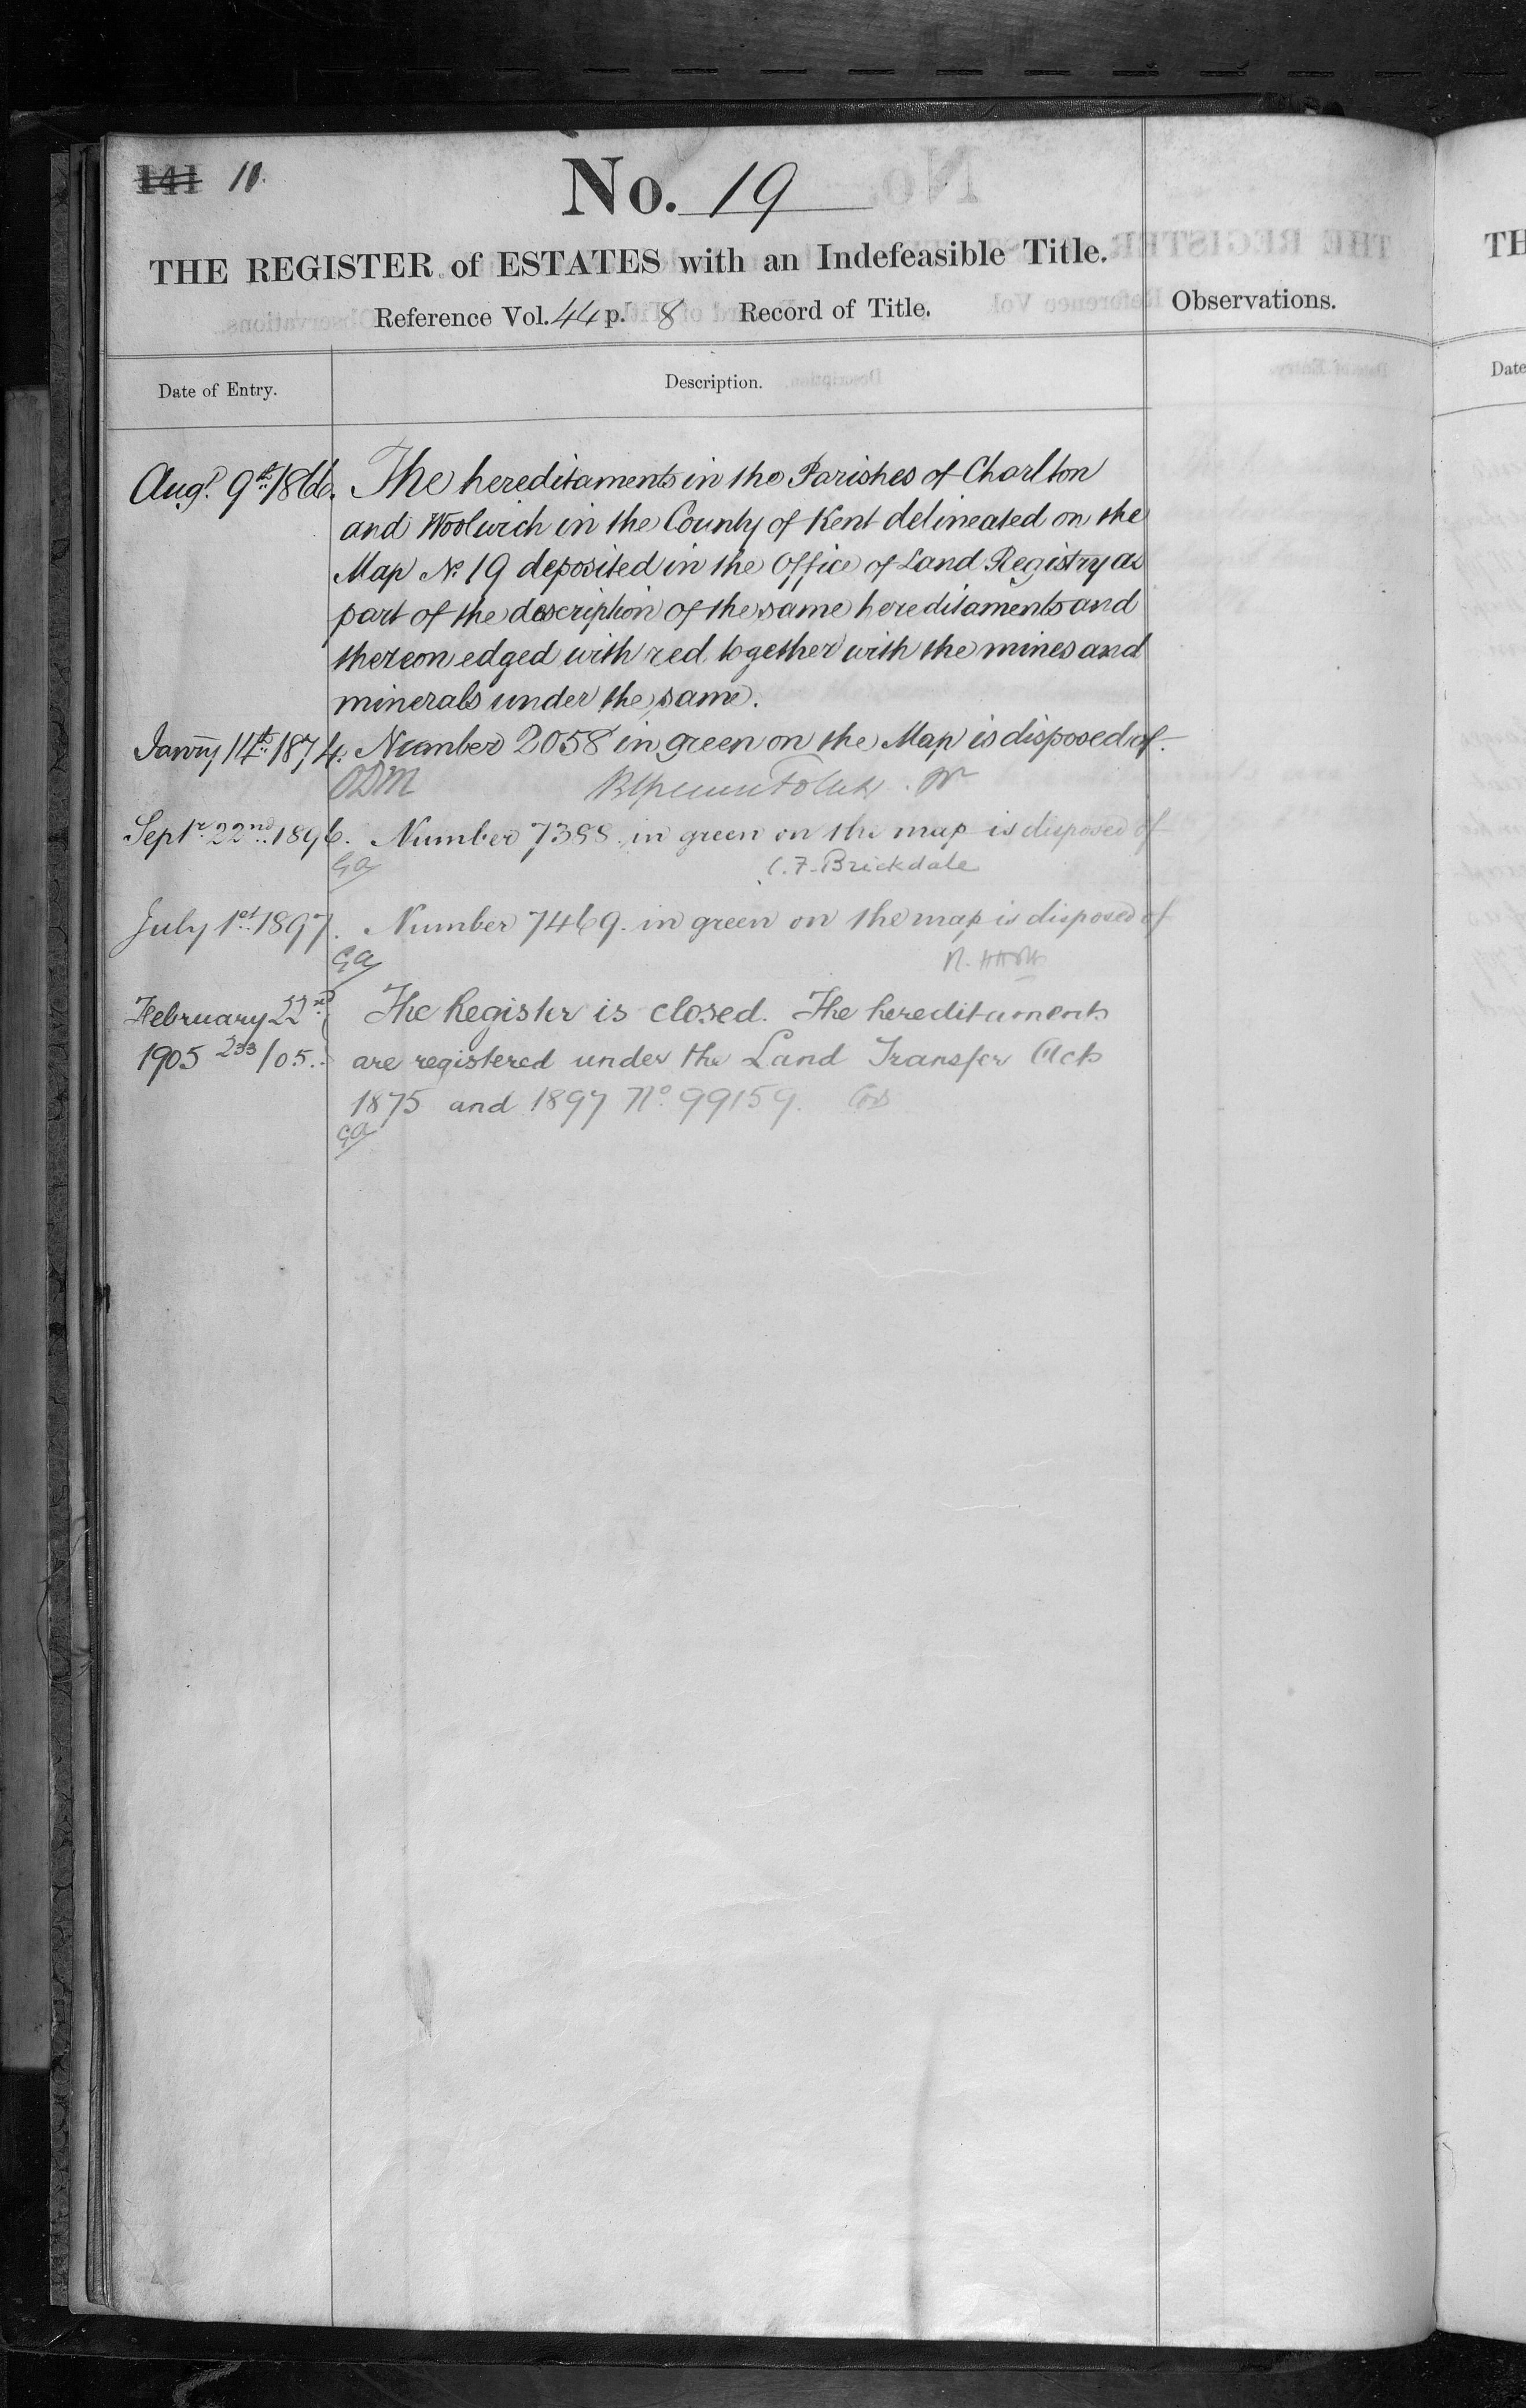 141 10.
No. 19
THE REGISTER of ESTATES with an Indefeasible Title.
Reference Vol. 44 p. 8 Record of Title.
Observations.
Date of Entry.
Description.
Augt. 9th 1866. The hereditaments in the Parishes of Charlton
and Woolwich in the County of Kent delineated on the
Map No. 19 deposited in the Office of Land Registry as
part of the description of the same hereditaments and
thereon edged with red together with the mines and
minerals under the same.
Janry 14th 1874. Number 2058 in green on the Map is disposed of.
ODM
Septr 22nd 1896. Number 7388 in green on the map is disposed of
GA C. F. Brickdale
July 1st 1897. Number 7469 in green on the map is disposed of
GA
February 22nd The Register is closed. The hereditaments
1905 233/05. are registered under the Land Transfer Acts
1875 and 1897 No. 99159.
GA
TH
Date